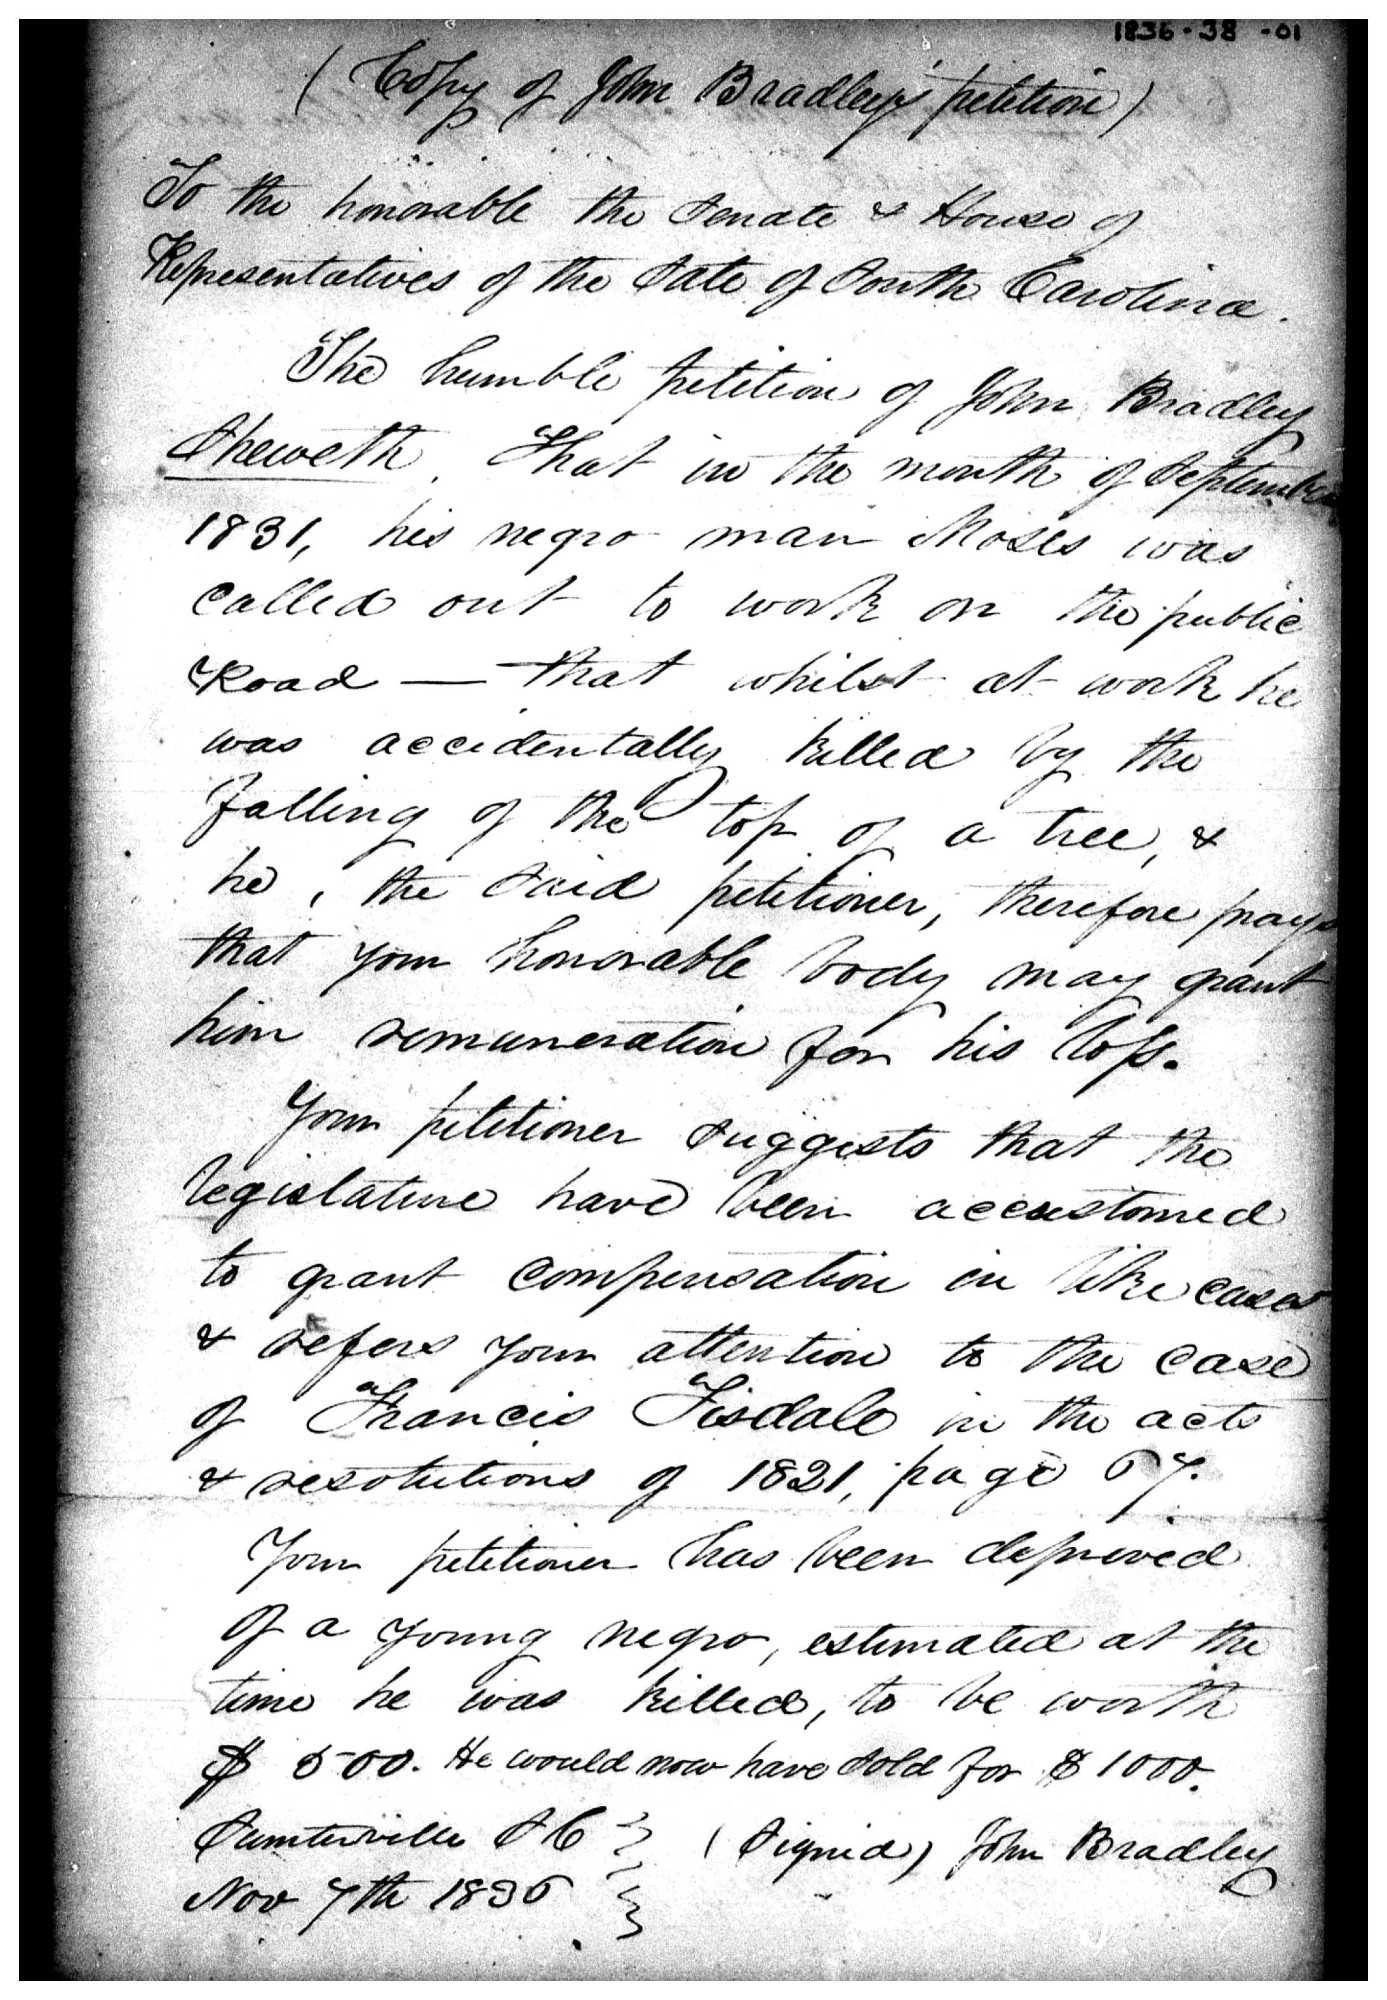 1836-38-01
( Copy of John Bradley's petition )
To the honorable the Senate & House of
Representatives of the State of South Carolina.
The humble petition of John Bradley
Sheweth. That in the month of September
1831, his negro man Moses was
called out to work on the public
Road — that whilst at work he
was accidentally killed by the
falling of the top of a tree, &
he, the said petitioner, therefore prays
that your honorable body may grant
him remuneration for his loss.
Your petitioner suggests that the
legislature have been accustomed
to grant compensation in like cases
& refers your attention to the case
of Francis Tisdale in the acts
& resolutions of 1821, page 67.
Your petitioner has been deprived
of a young negro, estimated at the
time he was killed, to be worth
$ 500. He would now have sold for $ 1000.
Sumterville S C } (Signed) John Bradley
Nov 7th 1836 }